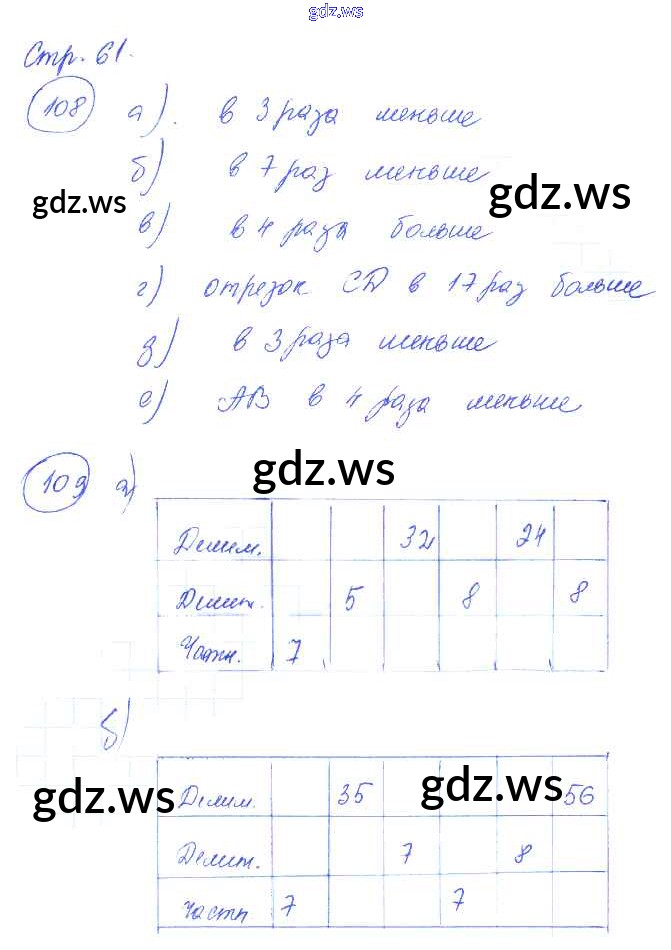 gdz.ws
Стр. 61.
108 а). в 3 раза меньше
б) в 7 раз меньше
gdz.ws
gdz.ws
в) в 4 раза больше
г) отрезок CD в 17 раз больше
д) в 3 раза меньше
е) AB в 4 раза меньше
gdz.ws
109 а)
Делим. 32 24
Делит. 5 8 8
Частн. 7
б)
gdz.ws
gdz.ws
Делим. 35 56
Делит. 7 8
Частн 7 7